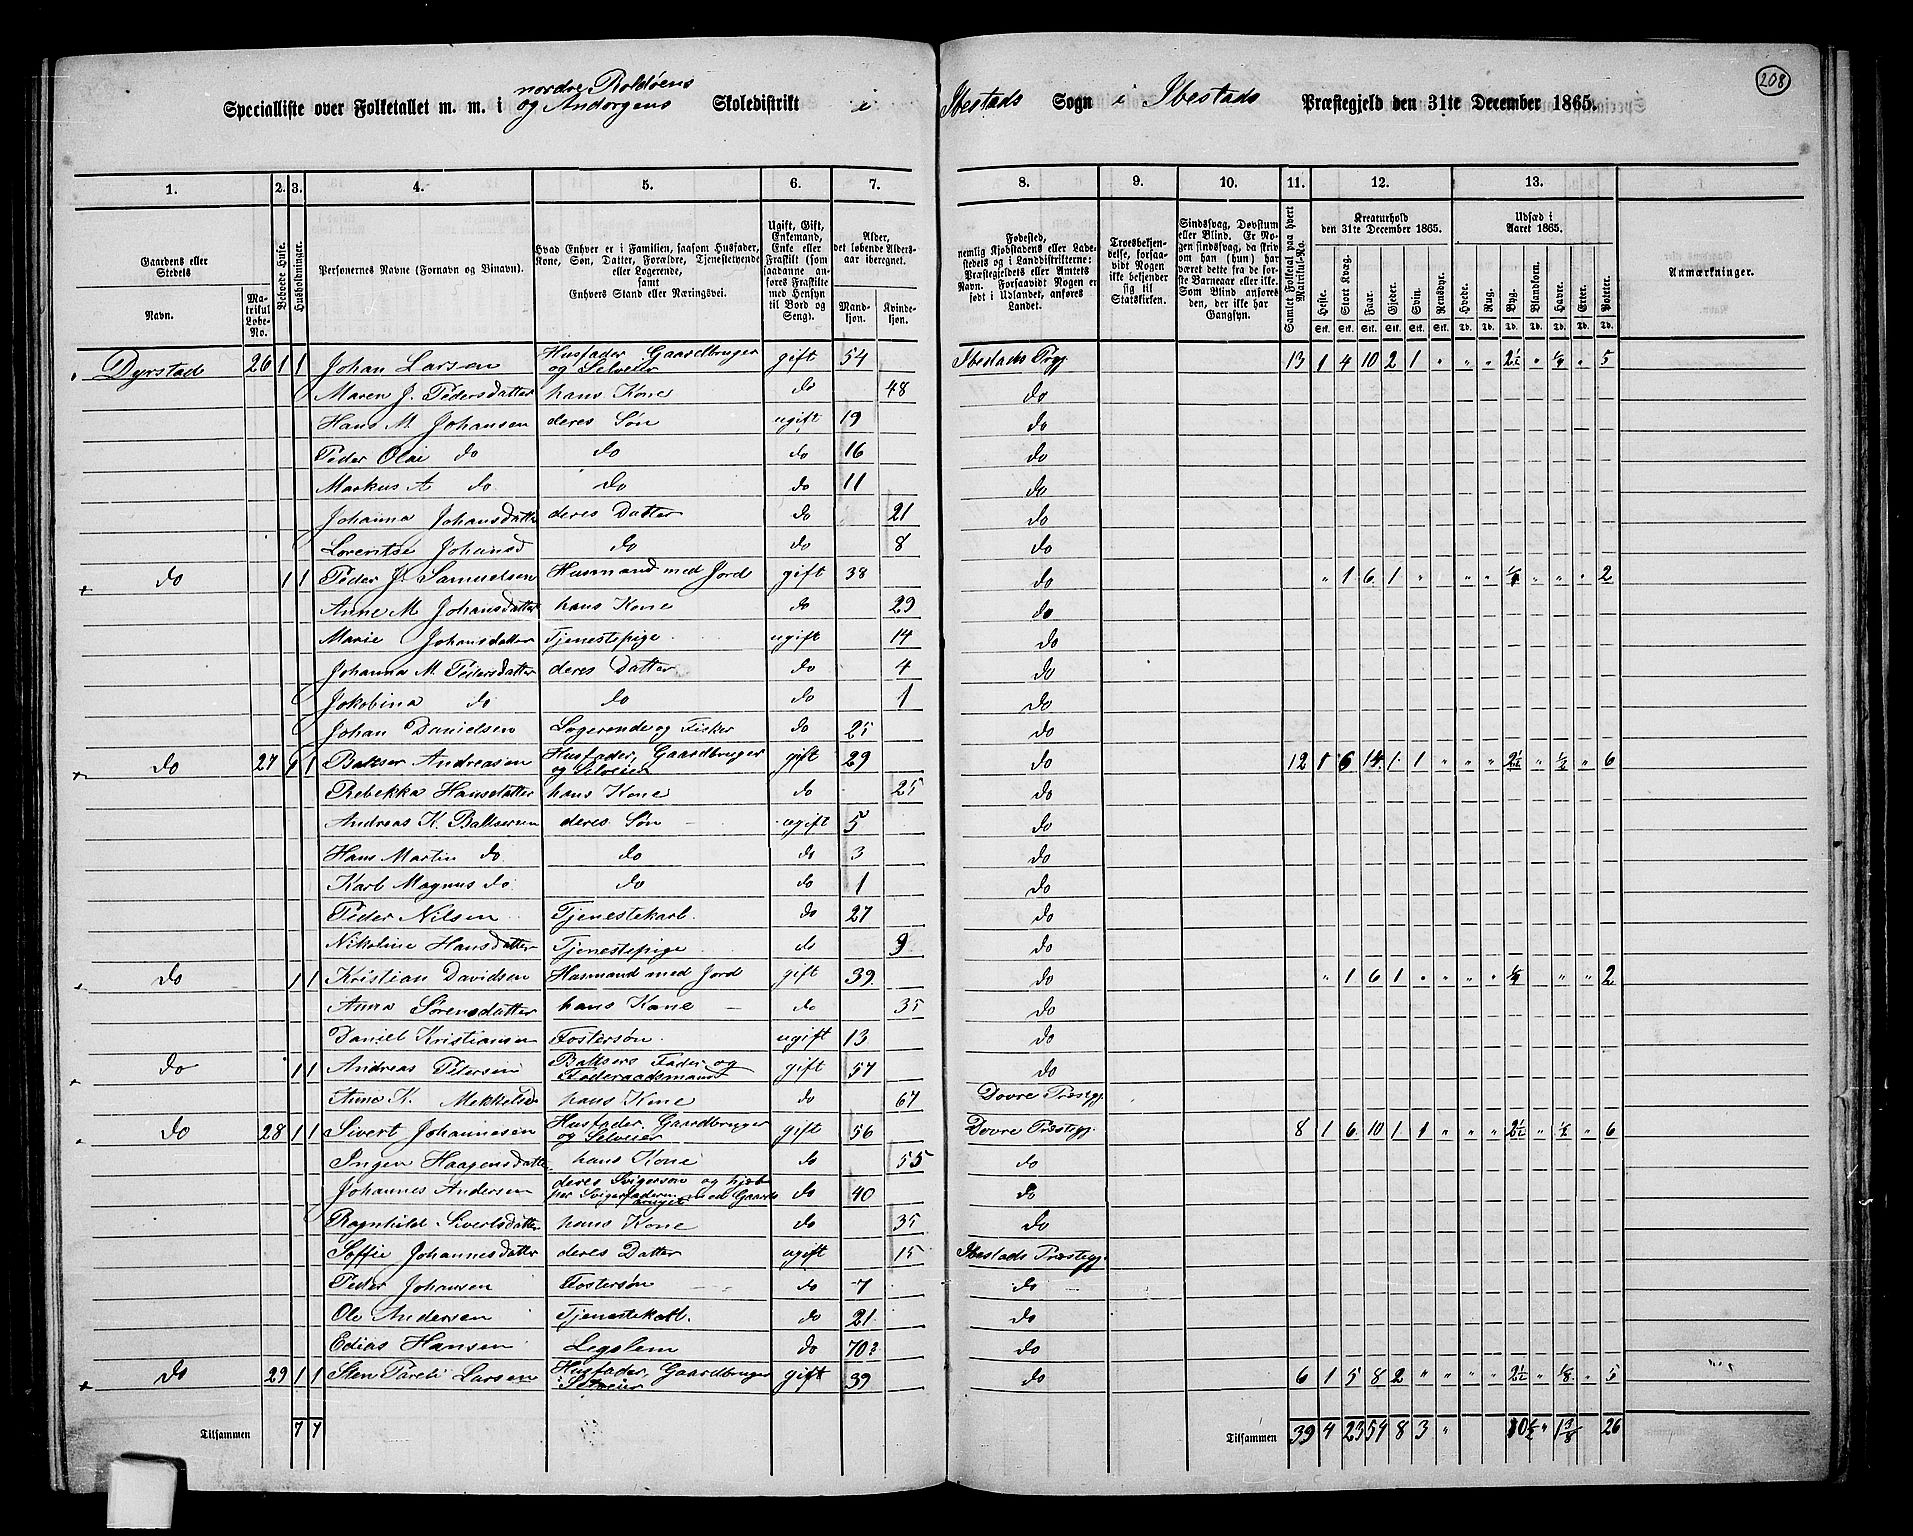 208
Specialliste over Folketallet m. m. i nordre Roldøens og Andørgens Skoledistrikt i Ibestads Sogn i Ibestads Præstegjeld den 31te December 1865.
1. 2. 3. 4. 5. 6. 7. 8. 9. 10. 11. 12. 13.
Gaardens eller Stedets Navn. Matrikul Løbe-No. Beboede Huse. Husholdninger. Personernes Navne (Fornavn og Tilnavn). Hvad Enhver er i Familien, saasom Husfader, Kone, Søn, Datter, Forældre, Tjenestetyende eller Logerende, samt Enhvers Stand eller Næringsvei. Ugift, Gift, Enkemand, Enke eller Fraskilt (som saadanne anføres Fraskilte med Hensyn til Bord og Seng). Alder, det løbende Aldersaar iberegnet. Mandkjøn. Kvindekjøn.
Fødested, nemlig Kjøbstadens eller Ladestedets og i Landdistrikterne: Præstegjeldets eller Amtets Navn. Forsaavidt Nogen er født i Udlandet, anføres Landet. Troesbekjendelse, forsaavidt Nogen ikke bekjender sig til Statskirken. Sindssvag, Døvstum eller Blind. Er Nogen sindssvag, da skrives om han (hun) har været dette fra de første Barneaar eller ikke. Som Blind anføres de, der ikke har Gangsyn. Samlet Folketal paa hvert Matrikul-No. Kreaturhold den 31te December 1865. Heste. Stort Kvæg. Faar. Gjeder. Svin. Rensdyr. Udsæd i Aaret 1865. Hvede. Rug. Byg. Blandkorn. Havre. Erter. Poteter. Anmærkninger.
Dyrstad 26 1 1 Johan Larsen Husfader, Gaardbruger og Selveier gift 54 Ibestads Prgj. 13 1 4 10 2 1 " " " 2½ " ¼ " 5
Maren J. Pedersdatter hans Kone do 48 do
Hans M. Johansen deres Søn ugift 19 do
Peder Olai do do do 16 do
Markus A do do do 11 do
Johanna Johansdatter deres Datter do 21 do
Lorentse Johansd do do 8 do
do 1 1 Peder J. Samuelsen Husmand med Jord gift 38 do " 1 6 1 " " " ¼ " " " 2
Anne M Johansdatter hans Kone do 29 do
Marie Johansdatter Tjenestepige ugift 14 do
Johanna M. Pedersdatter deres Datter do 4 do
Jokobina do do do 1 do
Johan Danielsen Logerende og Fisker do 25 do
do 27 1 1 Baltser Andreasen Husfader, Gaardbruger og Selveier gift 29 do 12 1 6 14 1 1 " " " 2½ " ½ " 6
Rebekka Hansdatter hans Kone do 25 do
Andreas K. Baltsersen deres Søn ugift 5 do
Hans Martin do do do 3 do
Karl Magnus do do do 1 do
Peder Nilsen Tjenestekarl do 27 do
Nikoline Hansdatter Tjenestepige do 9 do
do 1 1 Kristian Davidsen Husmand med Jord gift 39 do " 1 6 1 " " " " ¼ " " 2
Anna Sørensdatter hans Kone do 35 do
Daniel Kristiansen Fostersøn ugift 13 do
do 1 1 Andreas Petersen Baltsers Fader og Føderaadsmand gift 57 do
Anne K. Mekkelsd hans Kone do 67 Dovre Præstegj.
do 28 1 1 Sivert Johannesen Husfader, Gaardbruger og Selveier gift 56 Dovre Præstegj. 8 1 6 10 1 1 " " " 2½ " ½ " 6
Ingen Haagensdatter hans Kone do 55 do
Johannes Andersen deres Svigersøn og hjælper Svigerfaderen med Gaardsbruget do 40 do
Ragnhild Sivertsdatter hans Kone do 35 do
Soffie Johannesdatter deres Datter ugift 15 Ibestads Præstegj.
Peder Johansen Fostersøn do 7 do
Ole Andersen Tjenestekarl do 21 do
Edias Hansen Legslem do 70 do
do 29 1 1 Sten Pareli Larsen Husfader, Gaardbruger Selveier gift 39 do 6 1 5 8 2 " " " " 2½ " ⅛ " 5
Tilsammen 7 7 Tilsammen 39 4 23 54 8 3 " 10½ " 1⅜ 26